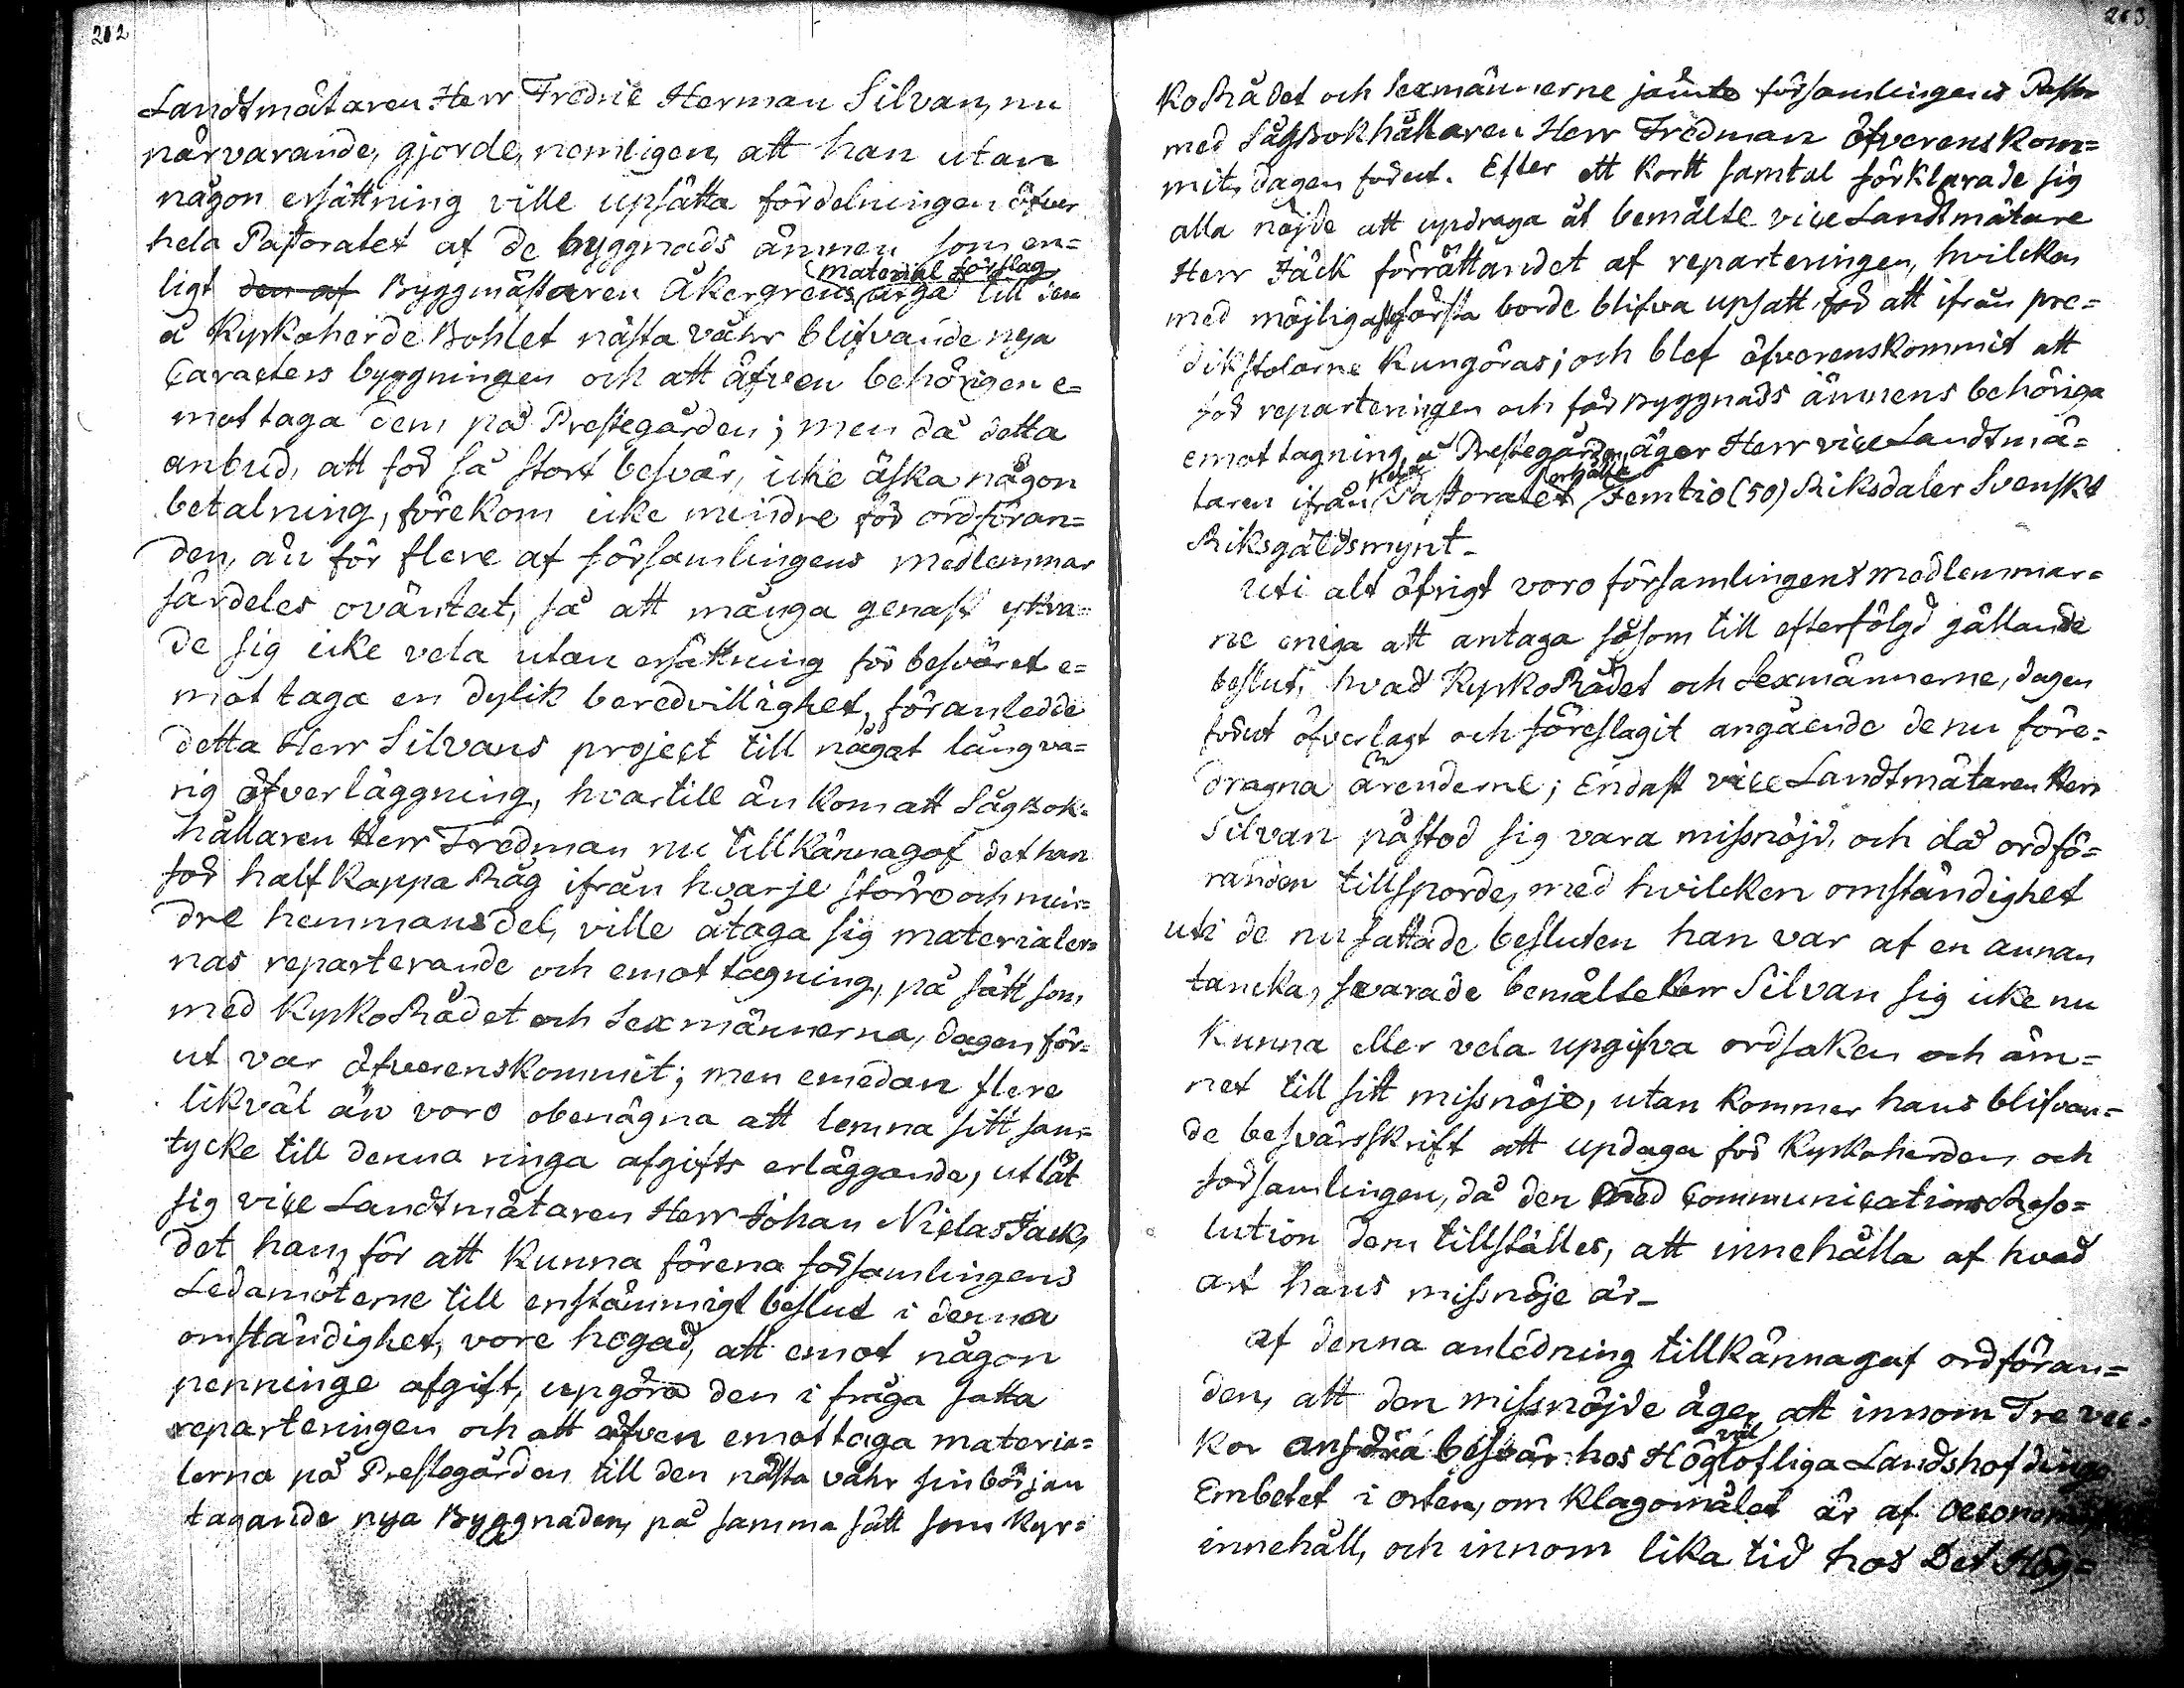 202
Landtmätaren Herr Fredric Herman Silvan, nu
närvarande, gjorde, nemligen, att han utan
någon ersättning ville upsätta fördelningen öfver
hela Pastoratet af de byggnads ämnen som en=
material förslag
ligt den af Byggmästaren Åkergrens årga till den
å Kyrkoherde Bohlet nästa våhr blifvande nya
Caracters byggningen och att äfven behörigen e=
mottaga dem på Prestegården; men då detta
anbud, att för så stort besvär, icke äska någon
betalning, förekom icke mindre för ordföran=
den, än för flere af församlingens medlemmar
särdeles oväntat, så att många genast yttra=
de sig icke vela utan ersättning för besväret e=
mottaga en dylik beredvillighet, föranledde
detta Herr Silvans project till något långva=
rig öfverläggning, hvartill än kom att Sågbok=
hållaren Herr Fredman nu tillkännagaf det han
för half Kappa Råg ifrån hvarje större och min=
dre hemmansdel, ville åtaga sig materialer=
nas reparterande och emottagning, på sätt som
med KyrkoRådet och Sexmännerna, dagen för=
ut var öfverenskommit; men emedan flere
likväl än voro obenägna att lemna sitt sam=
tycke till denna ringa afgifts erläggande, utlät
sig vice Landtmätaren Herr Johan Niclas Jack,
det han, för att kunna förena församlingens
Ledamöterne till enstämmigt beslut i denna
omständighet, vore hogad, att emot någon
penninge afgift, upgöra den i fråga satta
reparteringen och att äfven emottaga materia=
lerna på Prestegården till den nästa våhr sin början
tagande nya Byggnaden, på samma sätt som Kyr=
203
koRådet och Sexmännerne jämte församlingens Pastor
med Sågbokhållaren Herr Fredman öfverenskom=
mit, dagen förut. Efter ett kort samtal förklarade sig
alla nöjde att updraga åt bemälte vice Landtmätare
Herr Jäck förrättandet af reparteringen, hvilcken
med möjligast första borde blifva upsatt för att ifrån pre=
dikstolarne kungöras; och blef öfverenskommit att
för reparteringen och för Byggnads ämnens behöriga
emottagning å Prestegården, äger Herr vice Landtmä=
hela erhålla
taren ifrån Pastoratet Femtio (50) Riksdaler Svenskt
Riksgäldsmynt_
Uti alt öfrigt voro församlingens medlemmar=
ne eniga att antaga såsom till efterfölgd gällande
beslut, hvad KyrkoRådet och Sexmännerne, dagen
förut öfverlagt och föreslagit angående de nu före=
dragna ärenderne; Endast vice Landtmätaren Herr
Silvan påstod sig vara missnöjd, och då ordfö=
randen tillsporde, med hvilcken omständighet
uti de nu fattade besluten han var af en annan
tancka, svarade bemälte Herr Silvan sig icke nu
kunna eller vela upgifva ordsaken och äm=
net till sitt missnöje, utan kommer hans blifvan=
de besvärsskrift att updaga för Kyrkoherden och
församlingen, då den med Communications Reso=
lution dem tillställes, att innehålla af hvad
art hans missnöje är_
Af denna anledning tillkännagaf ordföran=
den, att den missnöjde äger, att innom Tre vec=
väl
kor anföra besvär hos Höglofliga Landshofdinge
Embetet i orten, om klagomålet är af
innehåll, och innom lika tid hos Det Hög=